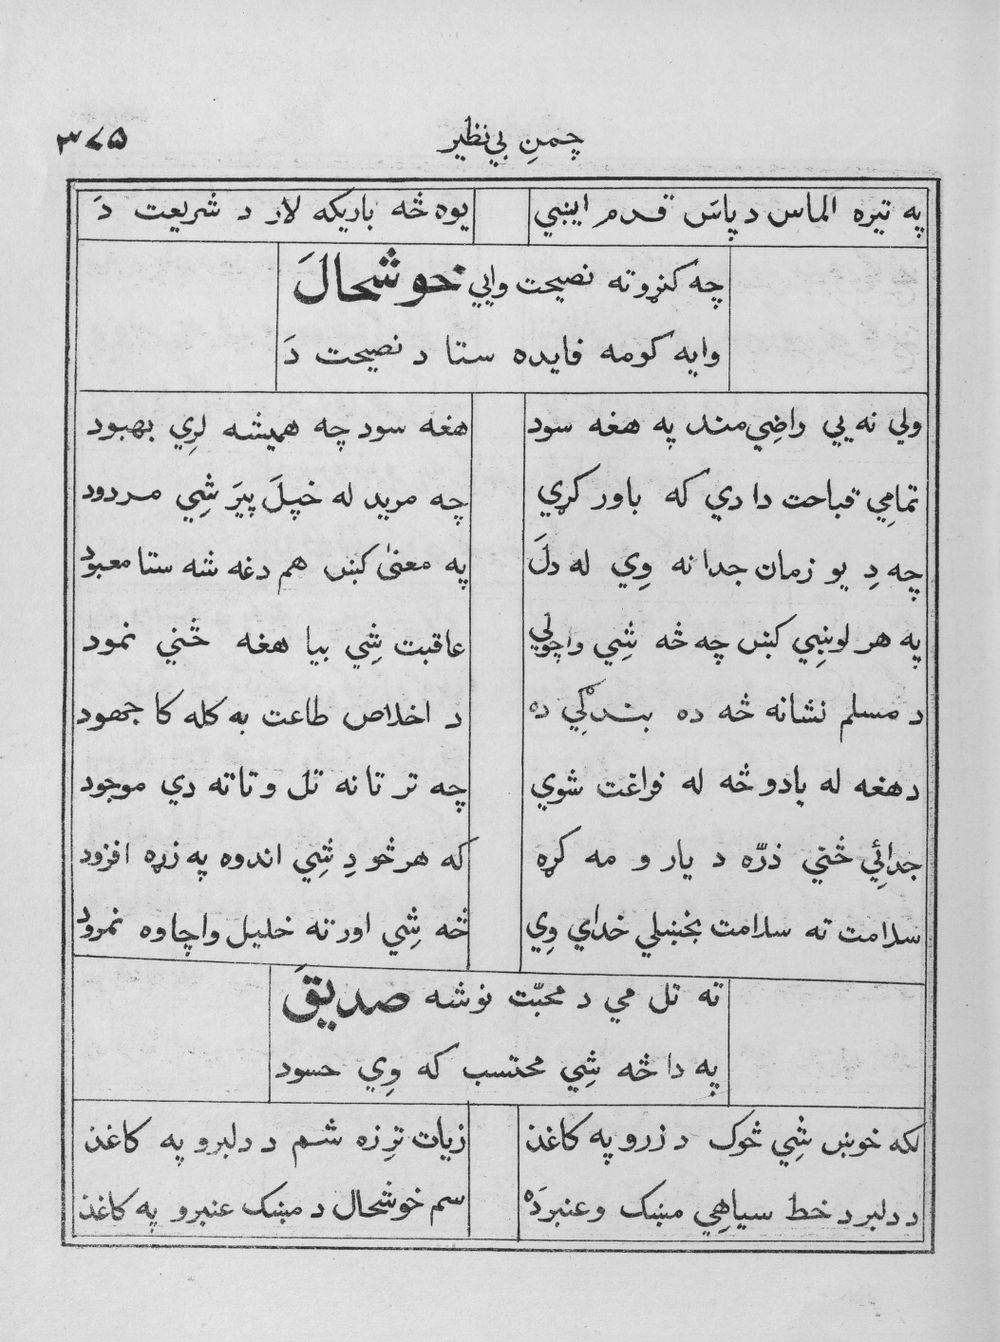 چمنِ بي نظير ۳۷۵
په تيره الماس د پاسَ قدم اينږي يوه څه باريکه لار د شريعت دَ
چه کنړو ته نصيحت وايي خوشحالَ
وايه کومه فايده ستا د نصيحت دَ
ولي نه يي راضِي مند په هغه سود هغه سود چه هميشه لرِي بهبود
تمامِي قباحت دا دي که باور کړي چه مريد له خپلَ پيرَ شِي مردود
چه دِ يو زمان جدا نه وِي له دلَ په معنیٰ کښ هم دغه شه ستا معبود
په هر لوښِي کښ چه څه شِي واچولي عاقبت شِي بيا هغه ځني نمود
د مسلم نشانه څه ده بندګِي ده د اخلاص طاعت به کله کا جهود
د هغه له يادو څه له فراغت شوي چه تر تا نه تل و تا ته دي موجود
جدائِي ځني ذرّه د يار و مه کړه که هر څو دِ شِي اندوه په زړه افزود
سلامت ته سلامت بخښلي خداي وِي څه شِي اور ته خليل واچاوه نمرود
ته تل مي د محبّت نوشه صديقَ
په دا څه شِي محتسب که وِي حسود
لکه خوښ شِي څوک د زرو په کاغذ زيات ترِ زه شم د دلبرو په کاغذ
د دلبر د خط سياهِي مښک و عنبر دَه سم خوشحال د مښک عنبرو په کاغذ